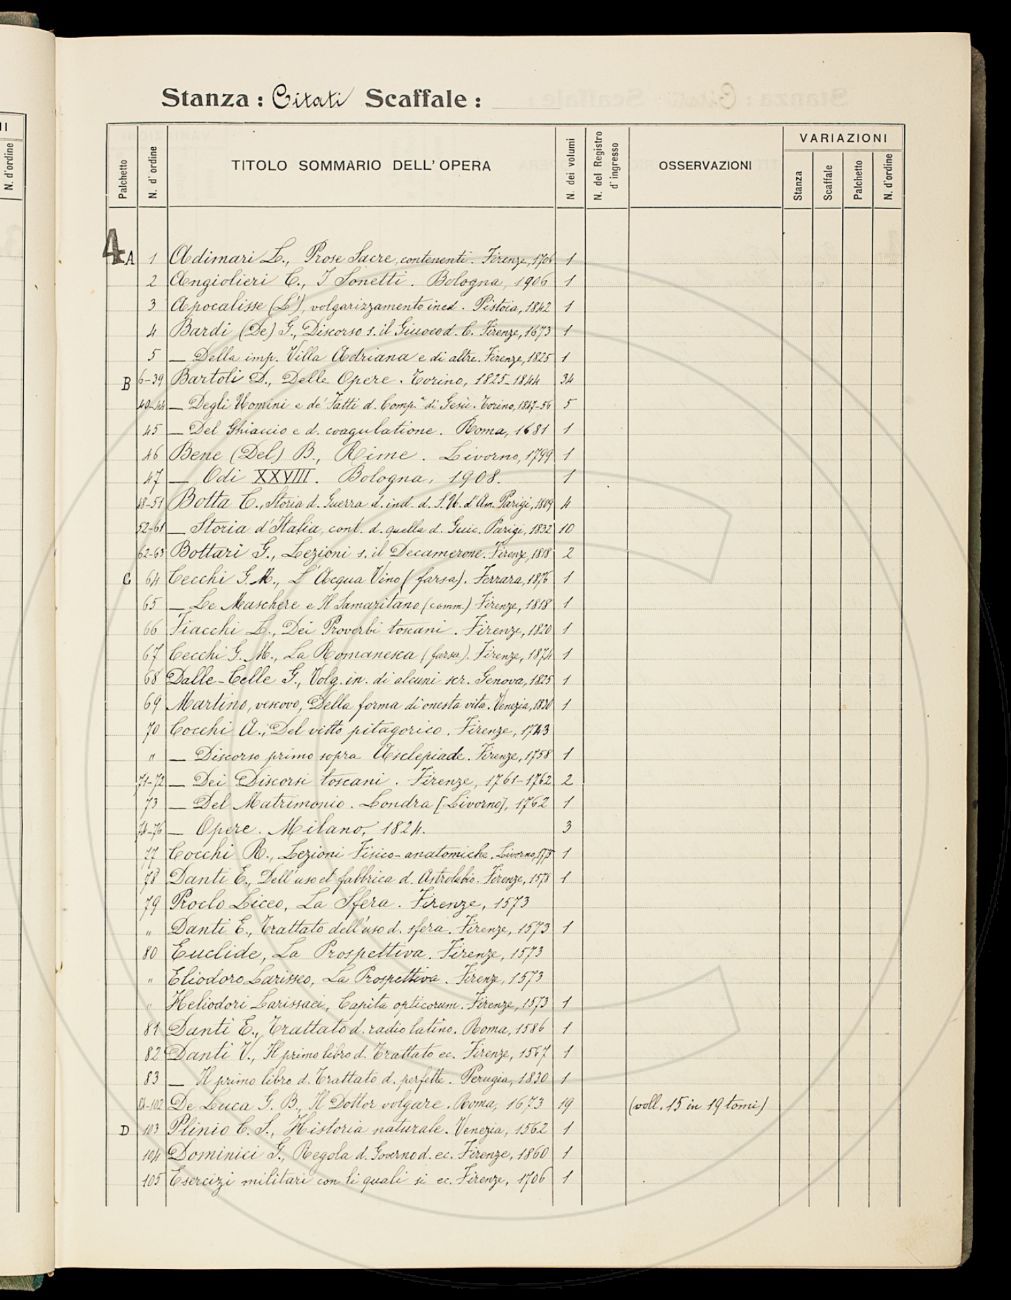 Stanza: Citati Scaffale:
Palchetto N. d'ordine TITOLO SOMMARIO DELL'OPERA N. dei volumi N. del Registro d'ingresso OSSERVAZIONI VARIAZIONI
Stanza Scaffale Palchetto N. d'ordine
N. d'ordine
4
A 1 Adimari L., Prose Sacre, contenenti. Firenze, 1706 1
2 Angiolieri C., I Sonetti. Bologna, 1906 1
3 Apocalisse (L'), volgarizzamento ined. Pistoia, 1842 1
4 Bardi (De) G., Discorso s. il Giuoco d. C. Firenze, 1673 1
5 — Della imp. Villa Adriana e di altre. Firenze, 1825 1
B 6-39 Bartoli D., Delle Opere. Torino, 1825-1844 34
40-44 — Degli Uomini e de' Fatti d. Comp.ª di Gesù. Torino, 1847-56 5
45 — Del Ghiaccio e d. coagulatione. Roma, 1681 1
46 Bene (Del) B., Rime. Livorno, 1799 1
47 — Odi XXVIII. Bologna, 1908. 1
48-51 Botta C., Storia d. Guerra d. ind. d. S. U. d'Am. Parigi, 1809 4
52-61 — Storia d'Italia, cont. d. quella d. Guic. Parigi, 1832 10
62-63 Bottari G., Lezioni s. il Decamerone. Firenze, 1818 2
C 64 Cecchi G. M., L'Acqua Vino (farsa). Ferrara, 1876 1
65 — Le Maschere e Il Samaritano (comm.) Firenze, 1818 1
66 Fiacchi L., Dei Proverbi toscani. Firenze, 1820 1
67 Cecchi G. M., La Romanesca (farsa). Firenze, 1874 1
68 Dalle-Celle G., Volg. in. di alcuni scr. Genova, 1825 1
69 Martino, vescovo, Della forma di onesta vita. Venezia, 1830 1
70 Cocchi A., Del vitto pitagorico. Firenze, 1743
" — Discorso primo sopra Asclepiade. Firenze, 1758 1
71-72 — Dei Discorsi toscani. Firenze, 1761-1762 2
73 — Del Matrimonio. Londra [Livorno], 1762 1
74-76 — Opere. Milano, 1824. 3
77 Cocchi R., Lezioni Fisico-anatomiche. Livorno, 1775 1
78 Danti E., Dell'uso et fabbrica d. Astrolabio. Firenze, 1578 1
79 Proclo Liceo, La Sfera. Firenze, 1573
" Danti E., Trattato dell'uso d. sfera. Firenze, 1573 1
80 Euclide, La Prospettiva. Firenze, 1573
" Eliodoro Larisseo, La Prospettiva. Firenze, 1573
" Heliodori Larissaei, Capita opticorum. Firenze, 1573 1
81 Danti E., Trattato d. radio latino. Roma, 1586 1
82 Danti V., Il primo libro d. Trattato ec. Firenze, 1567 1
83 — Il primo libro d. Trattato d. perfette. Perugia, 1830 1
84-102 De Luca G. B., Il Dottor volgare. Roma, 1673 19 (voll. 15 in 19 tomi)
D 103 Plinio C. S., Historia naturale. Venezia, 1562 1
104 Dominici G., Regola d. Governo d. ec. Firenze, 1860 1
105 Esercizi militari con li quali si ec. Firenze, 1706 1